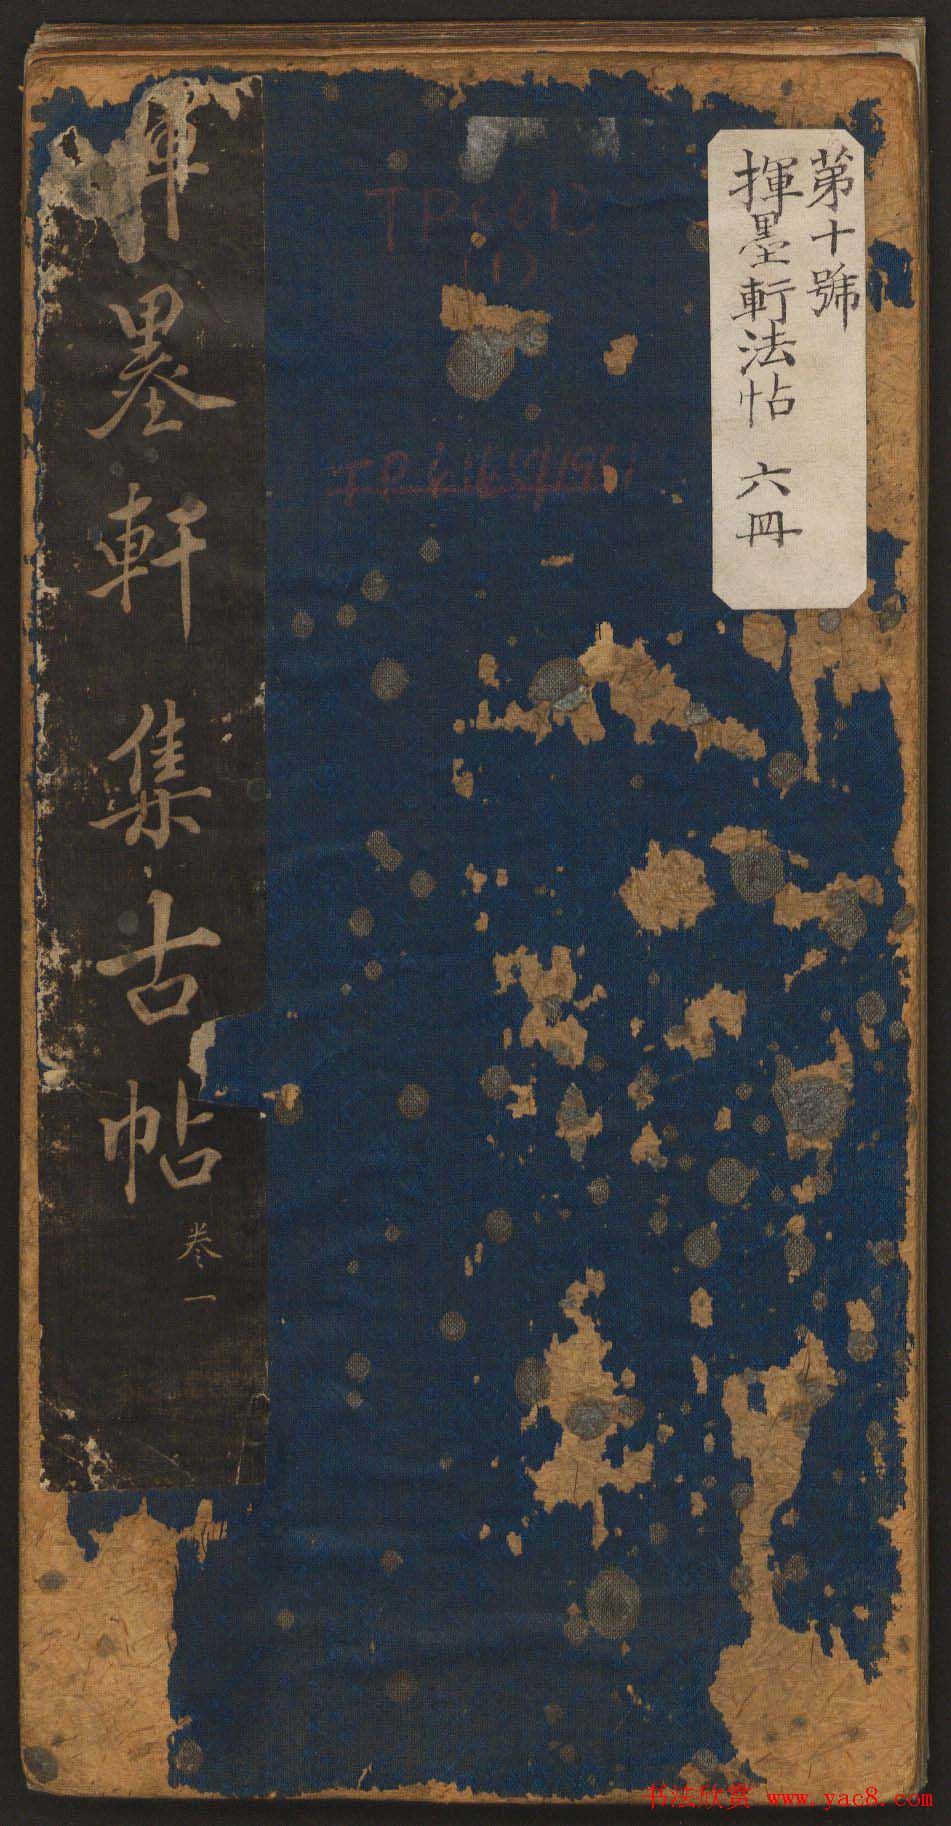 第十號
揮墨軒法帖 六冊
墨軒集古帖
卷一
书法欣赏 www.yac8.com